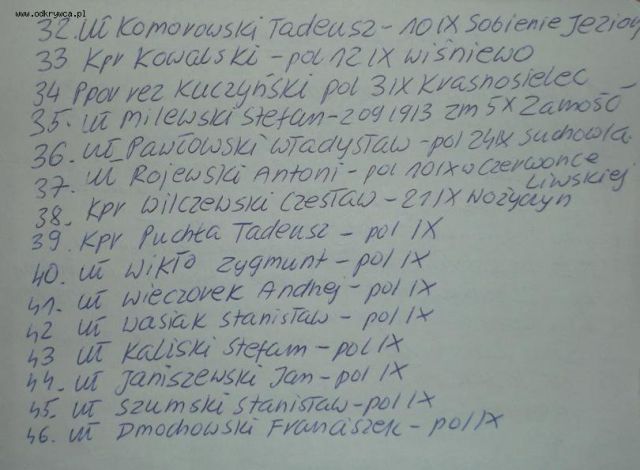 www.odkrywca.pl
32. uł Komorowski Tadeusz - 10 IX Sobienie Jeziory
33 Kpr Kowalski - pol 12 IX Wiśniewo
34 Ppor rez Kuczyński pol 3 IX Krasnosielec
35. uł Milewski Stefan - 2 09 1913 zm 5 X Zamość
36. uł Pawłowski Władysław - pol 24 IX Suchowla
37. uł Rojewski Antoni - pol 10 IX w Czerwonce Liwskiej
38. Kpr Wilczewski Czesław - 21 IX Wożyczyn
39. Kpr Puchta Tadeusz - pol IX
40. uł Wikło Zygmunt - pol IX
41. uł Wieczorek Andrzej - pol IX
42 uł Wasiak Stanisław - pol IX
43 uł Kaliski Stefam - pol IX
44. uł Janiszewski Jan - pol IX
45. uł Szumski Stanisław - pol IX
46. uł Dmochowski Franciszek - pol IX